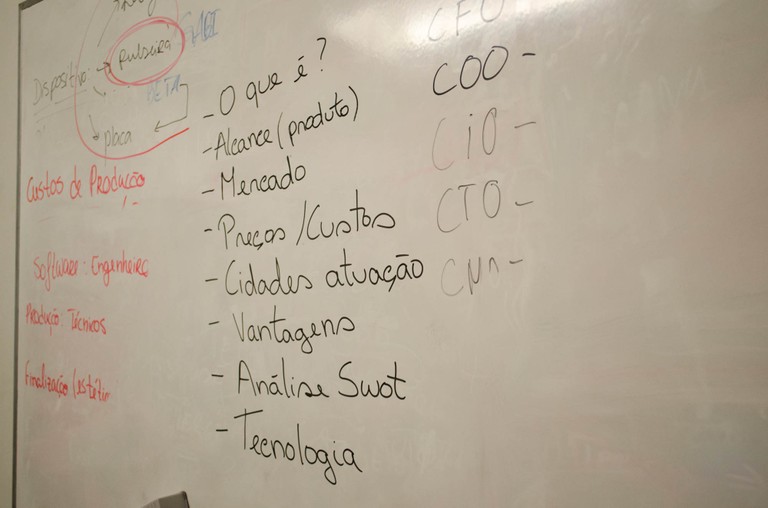 Dispositivo: → Pulseira
BETA
placa
Custos de Produção
Software: Engenheiro
Produção: Técnicos
Finalização (estétic
- O que é?
- Alcance (produto)
- Mercado
- Preços / Custos
- Cidades atuação
- Vantagens
- Análise Swot
- Tecnologia
CFO
COO -
CiO -
CTO -